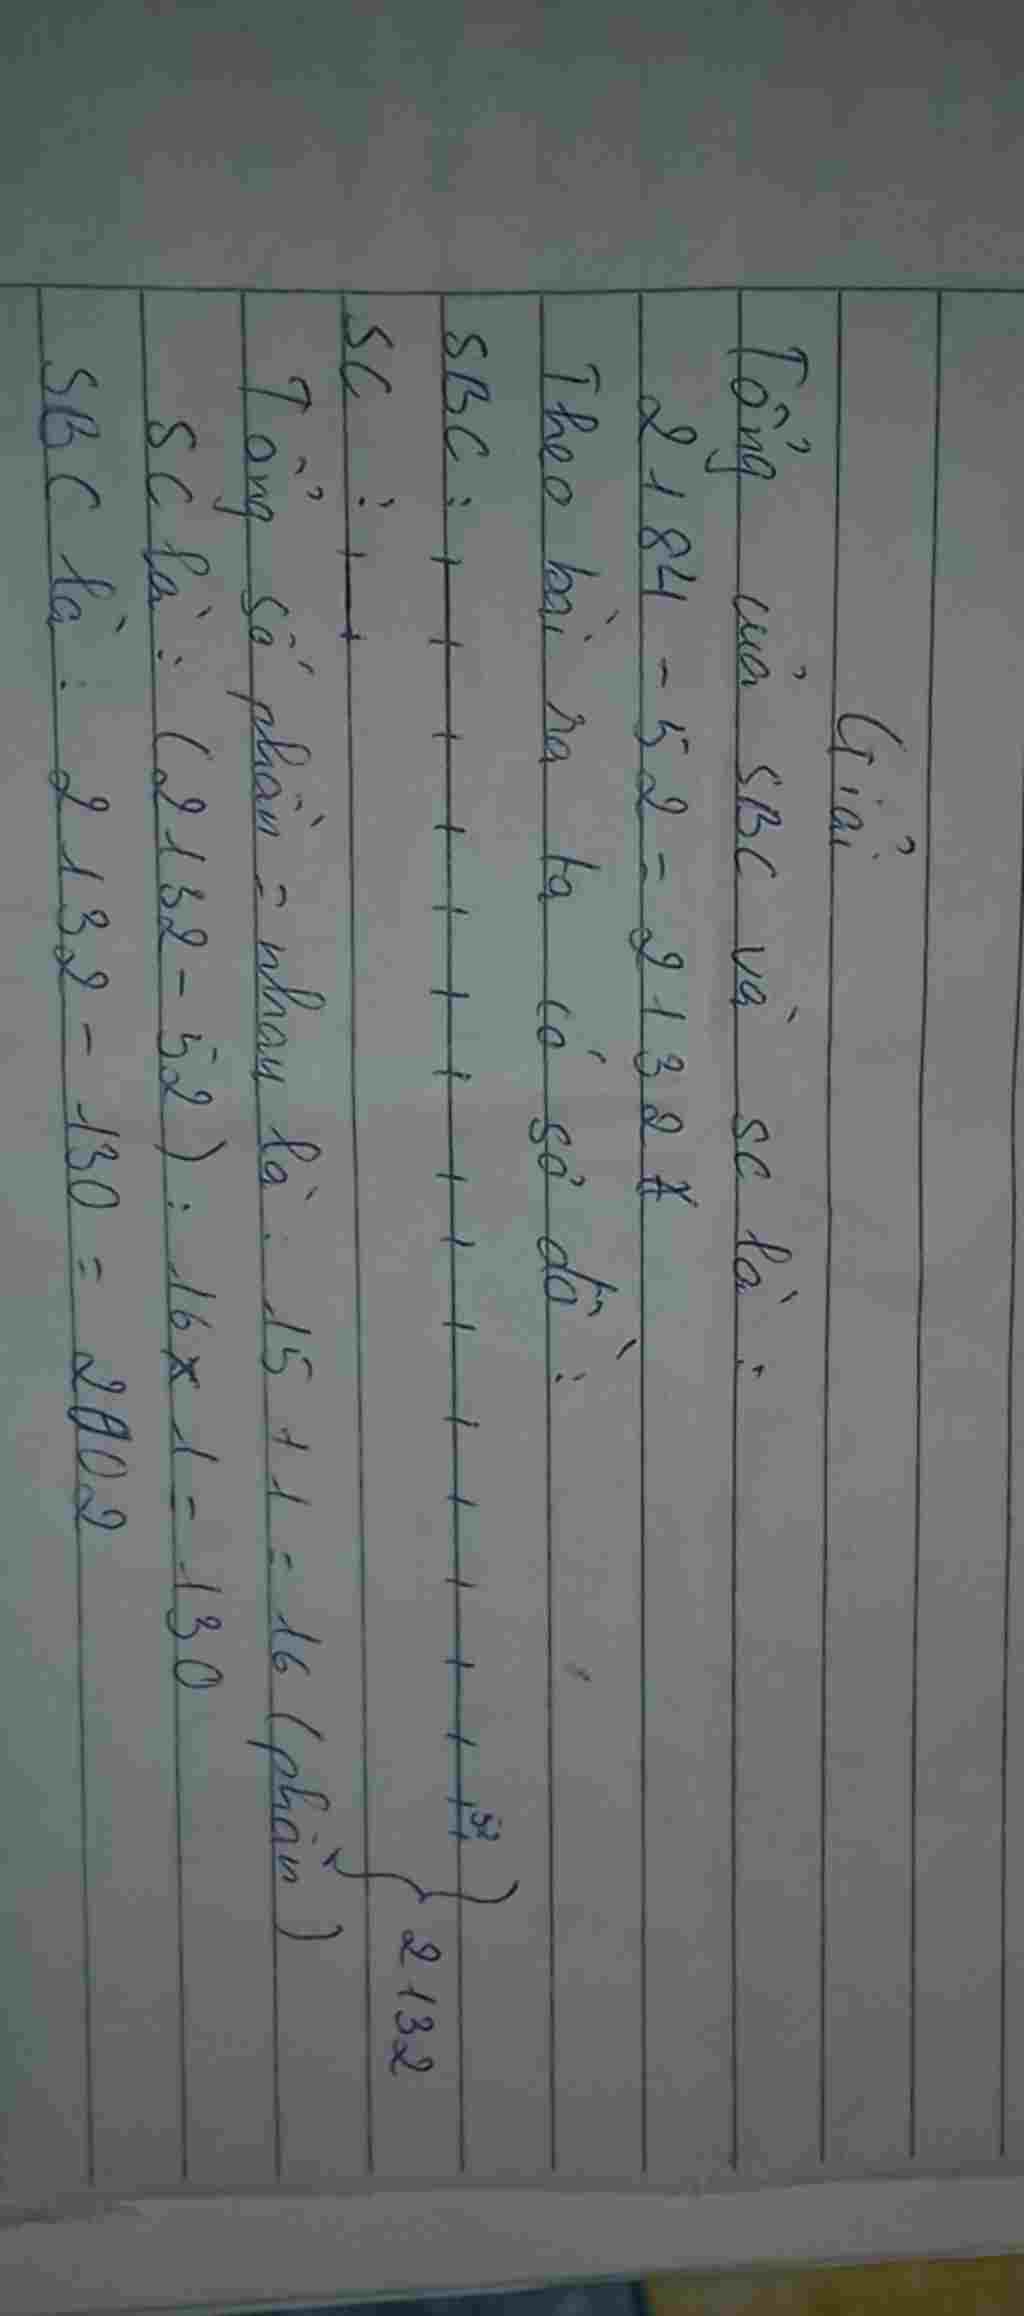 Giải
Tổng của SBC và SC là :
2184 - 52 = 2132
Theo bài ra ta có sơ đồ :
SBC : 52
SC : 2132
Tổng số phần = nhau là : 15 + 1 = 16 (phần)
SC là : (2132 - 52) : 16 x 1 = 130
SBC là : 2132 - 130 = 2002